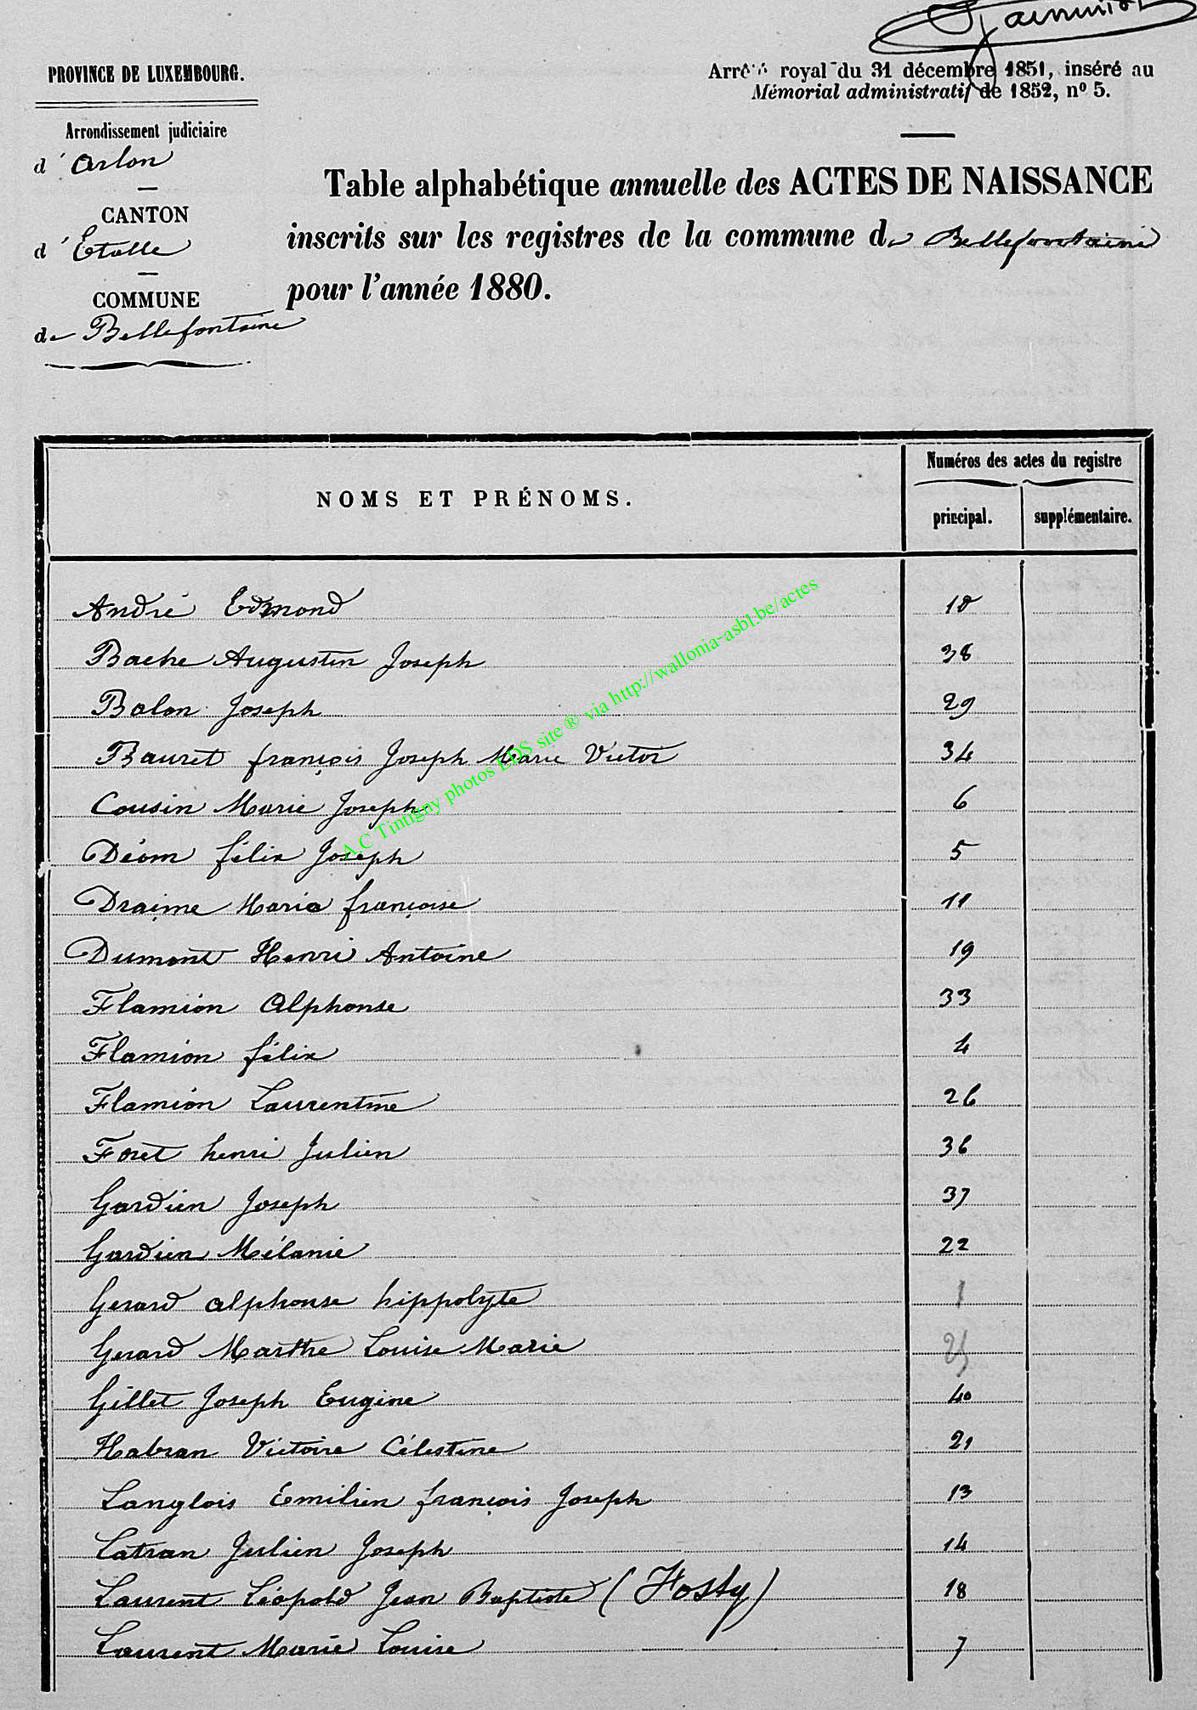 PROVINCE DE LUXEMBOURG.
Arrêté royal du 31 décembre 1851, inséré au
Mémorial administratif de 1852, nº 5.
Arrondissement judiciaire
d'Arlon
CANTON
d'Étalle
COMMUNE
de Bellefontaine
Table alphabétique annuelle des ACTES DE NAISSANCE
inscrits sur les registres de la commune de Bellefontaine
pour l'année 1880.
NOMS ET PRÉNOMS.
Numéros des actes du registre
principal. supplémentaire.
André Edmond 10
Bache Augustin Joseph 38
Balon Joseph 29
Bauret françois Joseph Marie Victor 34
Cousin Marie Joseph 6
Déom félix Joseph 5
Draime Maria françoise 11
Dumont Henri Antoine 19
Flamion Alphonse 33
Flamion félix 4
Flamion Laurentine 26
Foret henri Julien 36
Gardien Joseph 37
Gardien Mélanie 22
Gerard alphonse hippolyte 1
Gerard Marthe Louise Marie 25
Gillet Joseph Eugine 40
Habran Victoire Célestine 21
Langlois Emilien françois Joseph 13
Latran Julien Joseph 14
Laurent Léopold Jean Baptiste (Fossy) 18
Laurent Marie Louise 7
A.C Tintigny photos EOS site ® via http://wallonia-asbl.be/actes